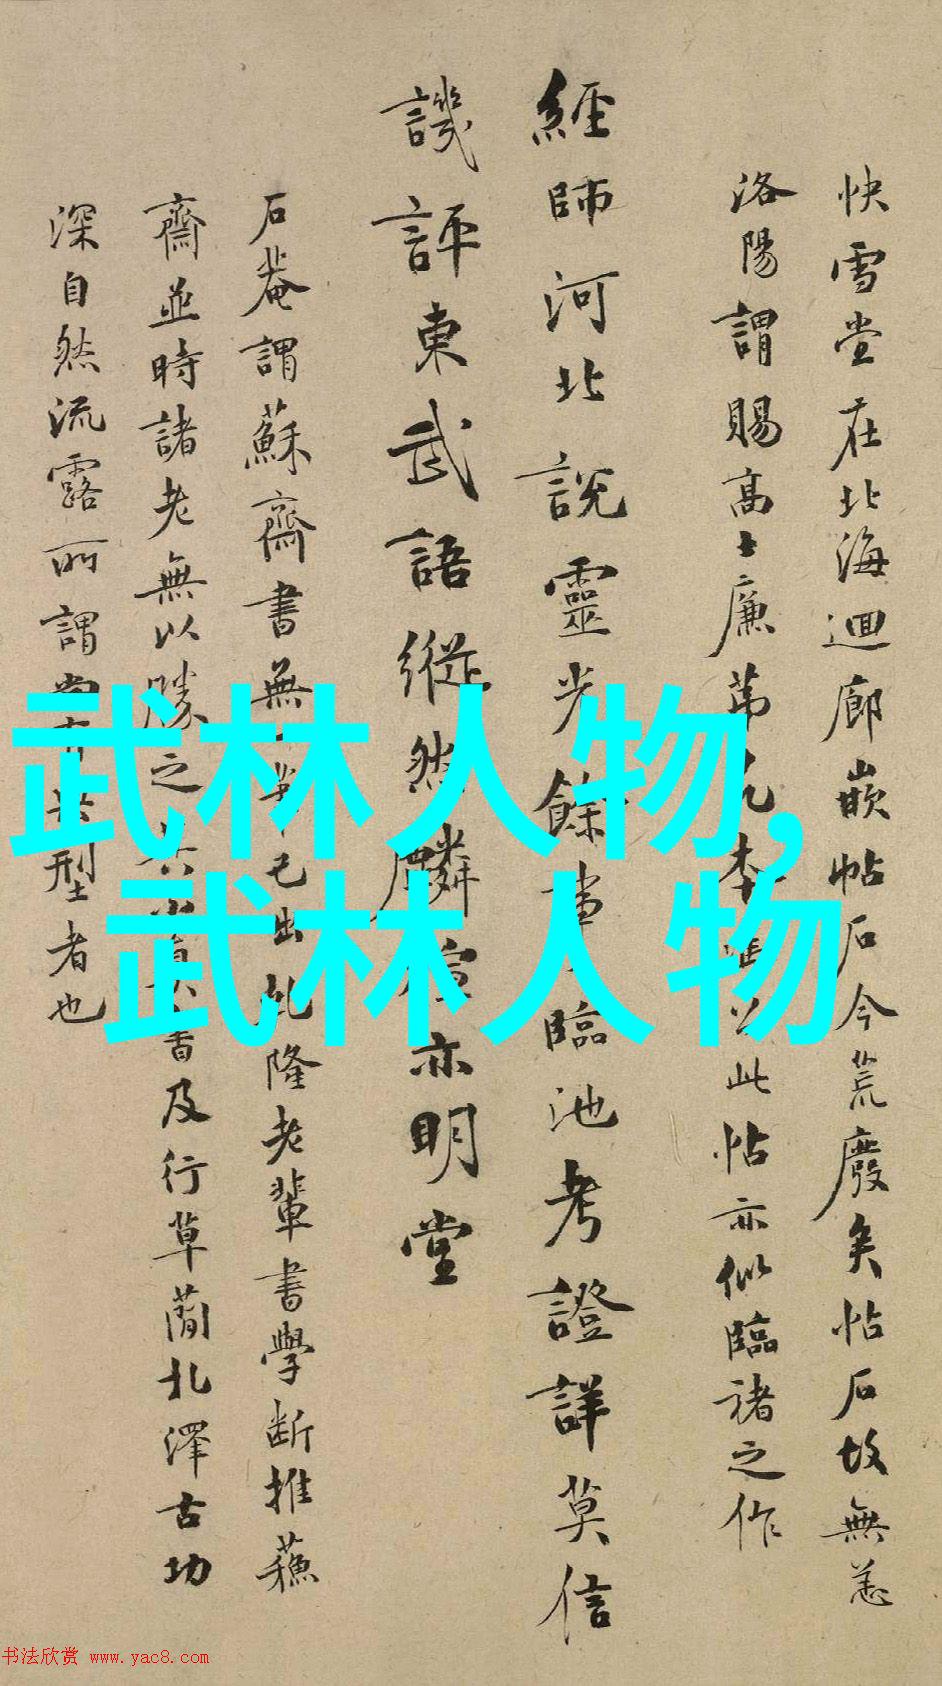 快雪堂在北海迴廊嵌帖石今荒廢矣帖石故無恙
洛陽謂賜高士廉第此帖亦似臨褚之作
經師河北說靈光餘事臨池考證詳莫信
譏評東武語縱然麟亦明堂
石菴謂蘇齋書無己出乾隆老輩書學斷推蘇
齋並時諸老無以勝之其書及行草蘭北澤古功
深自然流露所謂型者也
武林人物,
武林人物
书法欣赏 www.yac8.com